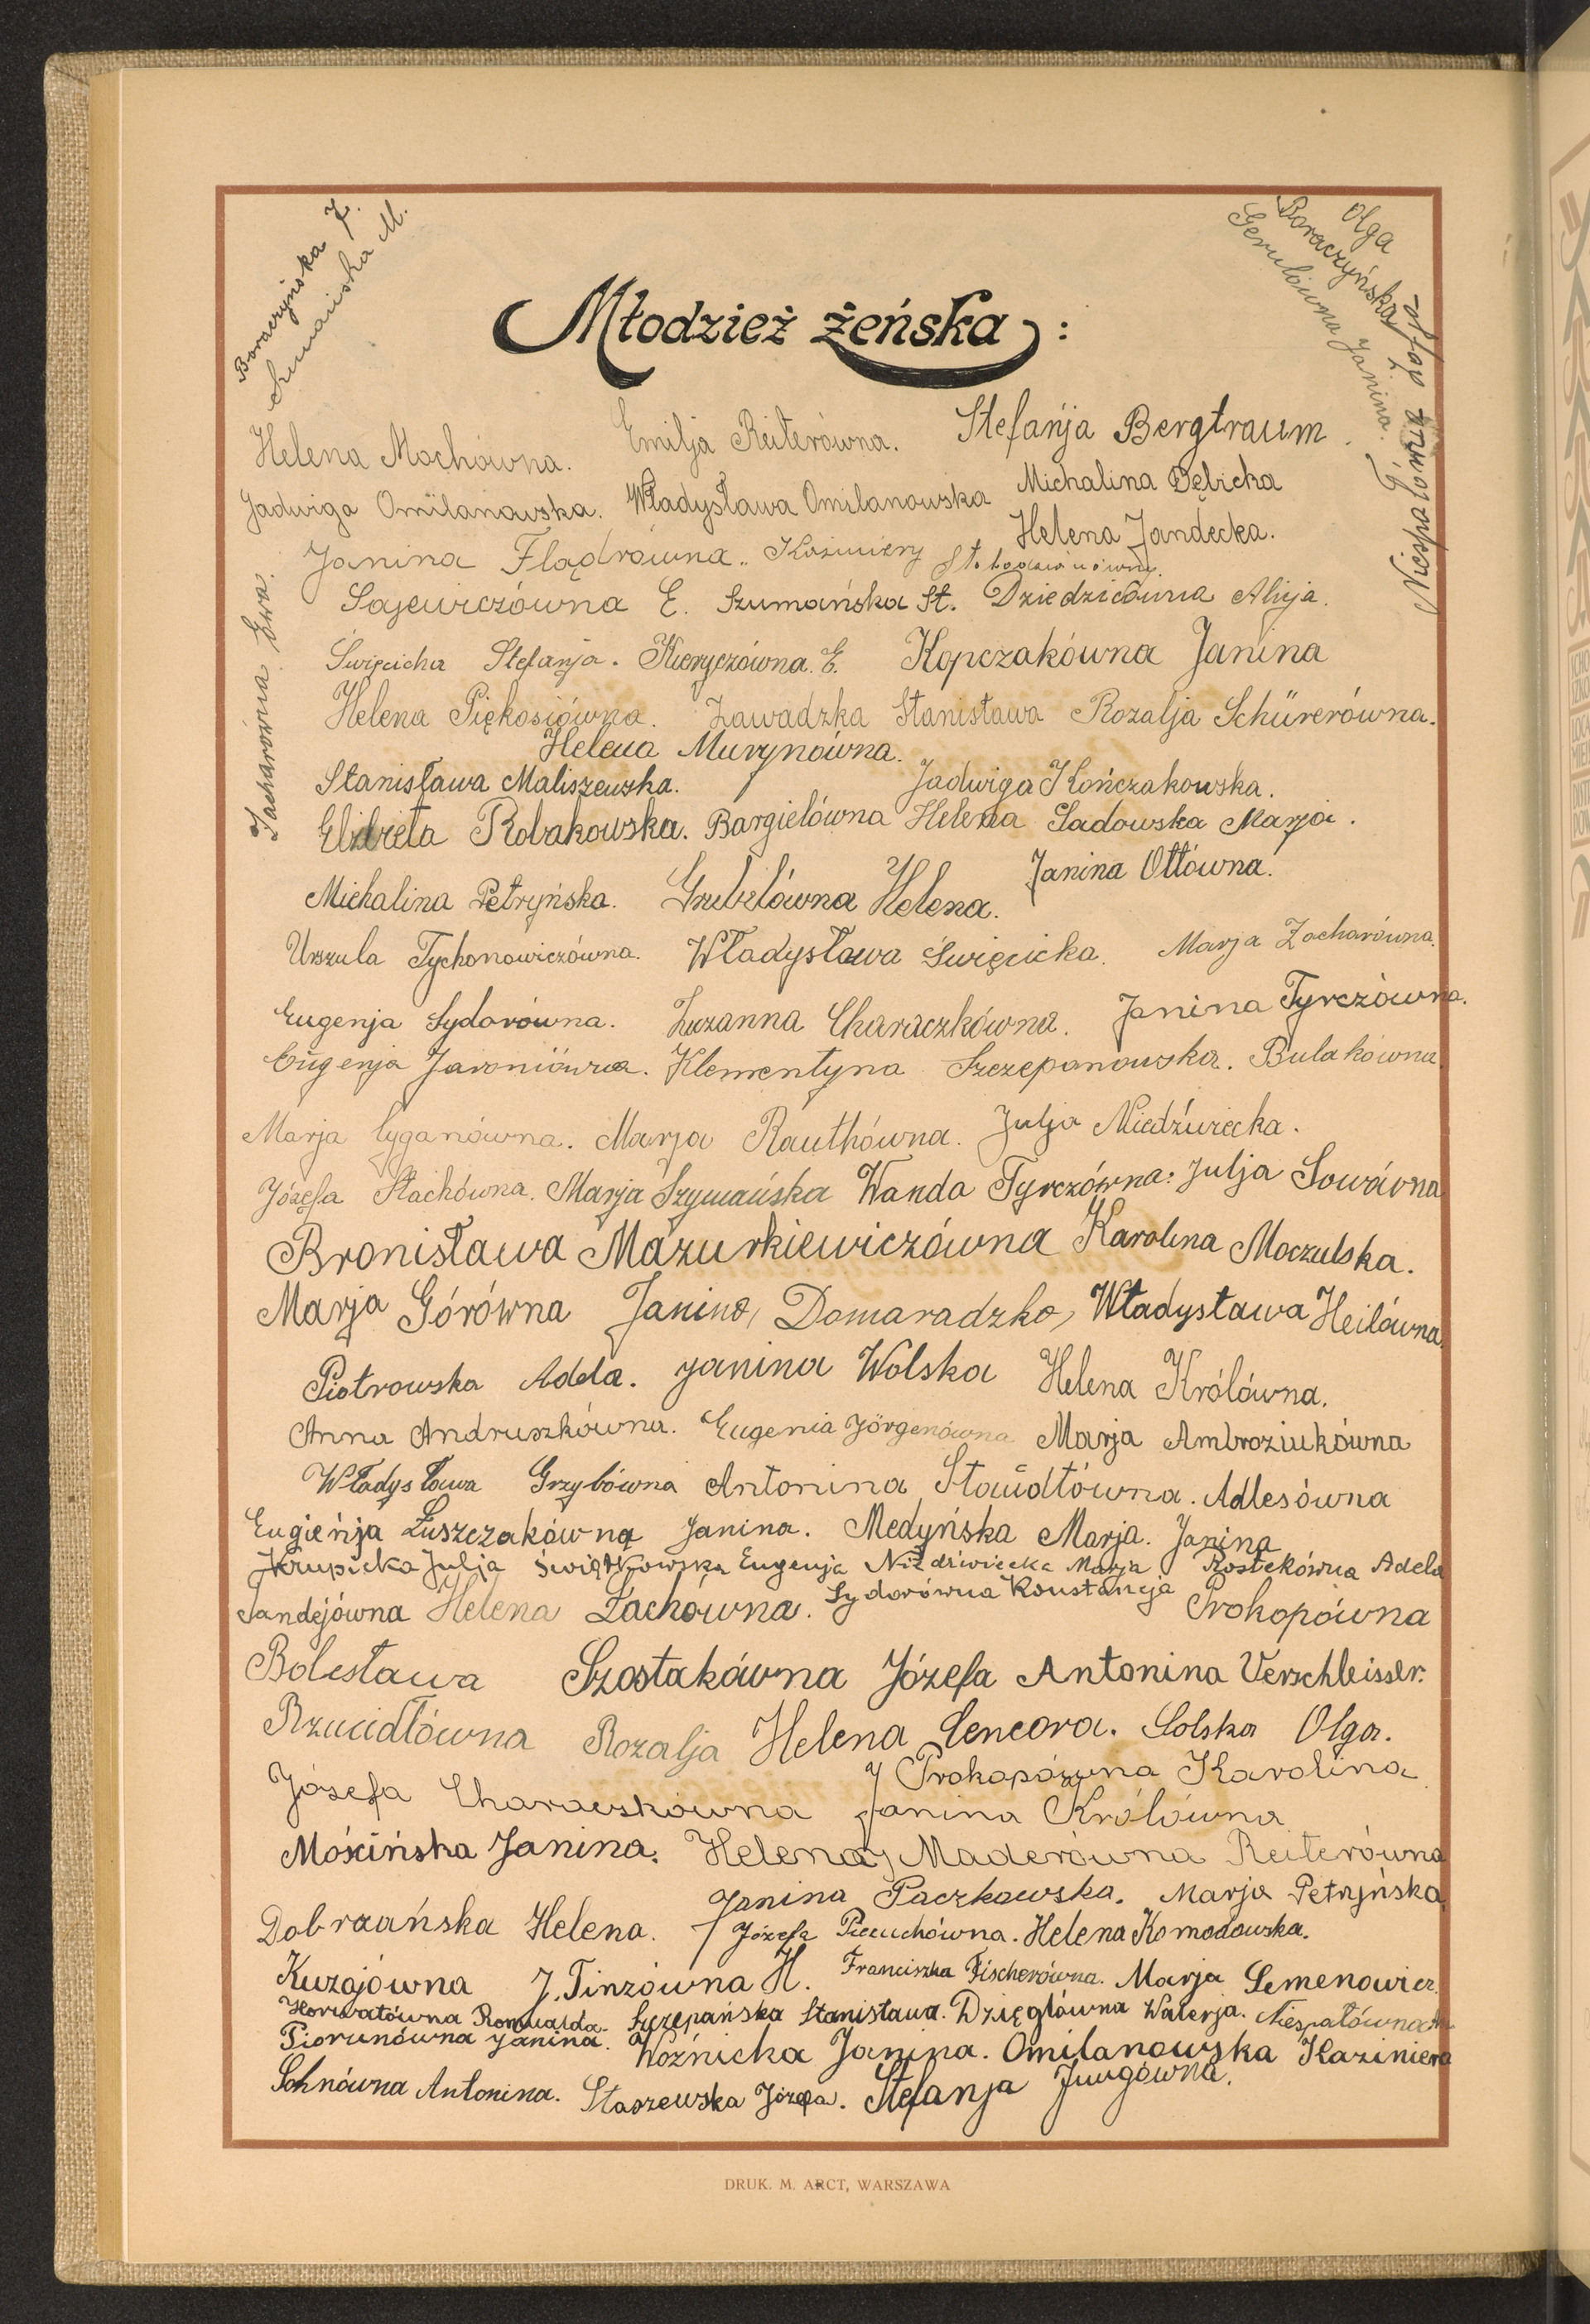 Boraczyńska J.
Szumańska M.
Olga
Boraczyńska
Gerulówna Janina.
Niespałówna Zofja
Zacharówna Ewa.
Młodzież żeńska:
Helena Mochówna. Emilja Reiterówna. Stefanja Bergtraum.
Jadwiga Omilanowska. Władysława Omilanowska Michalina Dębicka
Helena Jandecka.
Janina Flądrówna.
Sajewiczówna E. Szumańska St. Dziedzicówna Alicja.
Święcicka Stefanja. E. Kopczakówna Janina
Helena Piękosiówna. Zawadzka Stanisława Rozalja Schürerówna.
Helena Murynówna.
Stanisława Maliszewska. Jadwiga Kończakowska.
Elżbieta Robakowska. Bargielówna Helena Sadowska Marja.
Janina Ottówna.
Michalina Petryńska. Helena.
Urszula Tychonowiczówna. Władysława Święcicka. Marja Zacharówna.
Eugenja Sydorówna. Zuzanna Characzkówna. Janina Tyrczówna.
Eugenja Jaroniówna. Klementyna Szczepanowska. Bulakówna
Marja Cyganówna. Marja Rauthówna. Julja Niedźwiecka.
Józefa Stachówna. Marja Szymańska Wanda Tyrczówna. Julja Sowówna
Bronisława Mazurkiewiczówna Karolina Moczulska.
Marja Górówna Janina Domaradzka, Władysława Heilówna.
Piotrowska Adela. Janina Wolska Helena Królówna.
Anna Andruszkówna. Eugenia Jörgenówna Marja Ambroziukówna
Władysława Grzybówna Antonina Staudtówna. Adlesówna
Eugienja Łuszczakówna Janina. Medyńska Marja. Janina
Krupicka Julja Świątkowska Eugenja Niedźwiecka Marja Rostekówna Adela
Sandejówna Helena Łachówna. Sydorówna Konstancja Prokopówna
Bolesława Szostakówna Józefa Antonina Verschleisser.
Rzucidłówna Rozalja Helena Sencora. Solska Olga.
Prokopówna Karolina
Józefa Characzkówna Janina Królówna
Mościńska Janina. Helena Maderówna Reiterówna
Janina Paczkowska. Marja Petryńska
Dobrzańska Helena. Józefa Pieczuchówna. Helena Komodowska.
Kuzajówna J. Tinzówna H. Franciszka Fischerówna. Marja Semenowicz.
Horwatówna Romualda. Szczepańska Stanisława. Dzięglówna Walerja. Niespałówna M
Piorunówna Janina. Woźnicka Janina. Omilanowska Kazimiera
Sohnówna Antonina. Staszewska Józefa. Stefanja Jungówna.
DRUK. M. ARCT, WARSZAWA